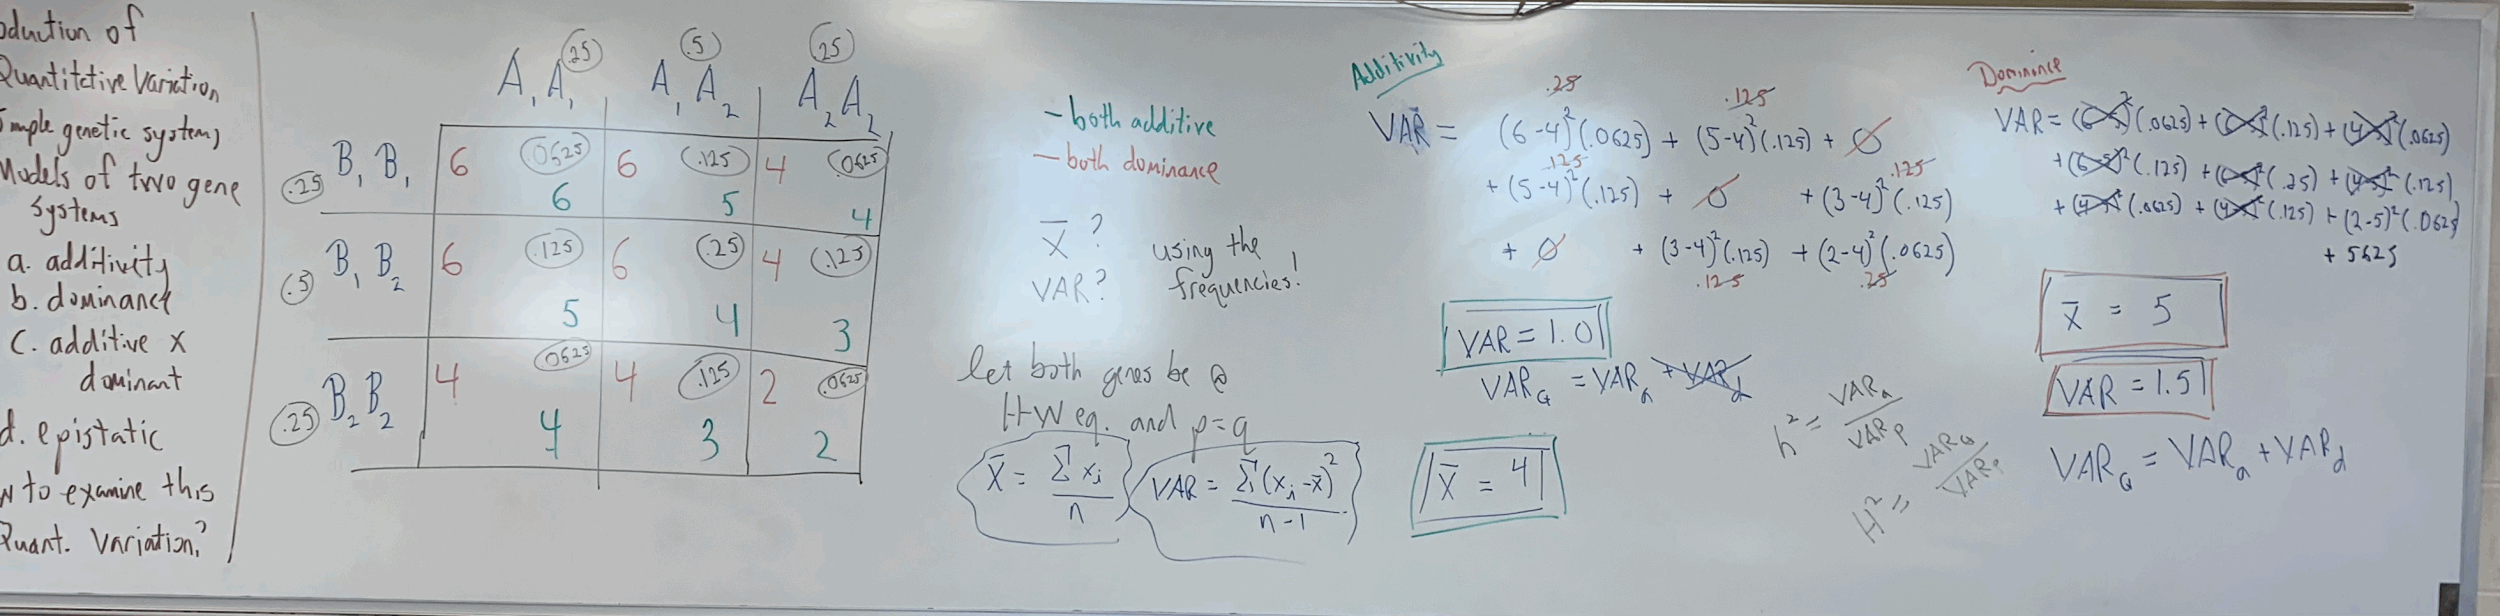 oduction of
Quantitative Variation
imple genetic systems
Models of two gene
systems
a. additivity
b. dominance
c. additive x
dominant
d. epistatic
to examine this
Quant. Variation?
.25 .5 .25
A₁A₁ A₁A₂ A₂A₂
.25 B₁B₁ 6 .0625 6 .125 4 .0625
6 5 4
.5 B₁B₂ 6 .125 6 .25 4 .125
5 4 3
.25 B₂B₂ 4 .0625 4 .125 2 .0625
4 3 2
- both additive
- both dominance
x̄ ?
VAR?
using the
frequencies!
let both genes be @
HW eq. and p=q
x̄ = Σxᵢ / n
VAR = Σ(xᵢ-x̄)² / n-1
Additivity
.25 .125
VAR = (6-4)²(.0625) + (5-4)²(.125) + 0
.125 .125
+ (5-4)²(.125) + 0 + (3-4)²(.125)
+ 0 + (3-4)²(.125) + (2-4)²(.0625)
.125 .25
VAR = 1.0
VAR_G = VAR_a + VAR_d
x̄ = 4
h² = VAR_a / VAR_P
H² = VAR_G / VAR_P
Dominance
VAR = (.0625) + (.125) + (.0625)
+ (.125) + (.25) + (.125)
+ (.0625) + (.125) + (2-5)²(.0625)
+ 5625
x̄ = 5
VAR = 1.5
VAR_G = VAR_a + VAR_d